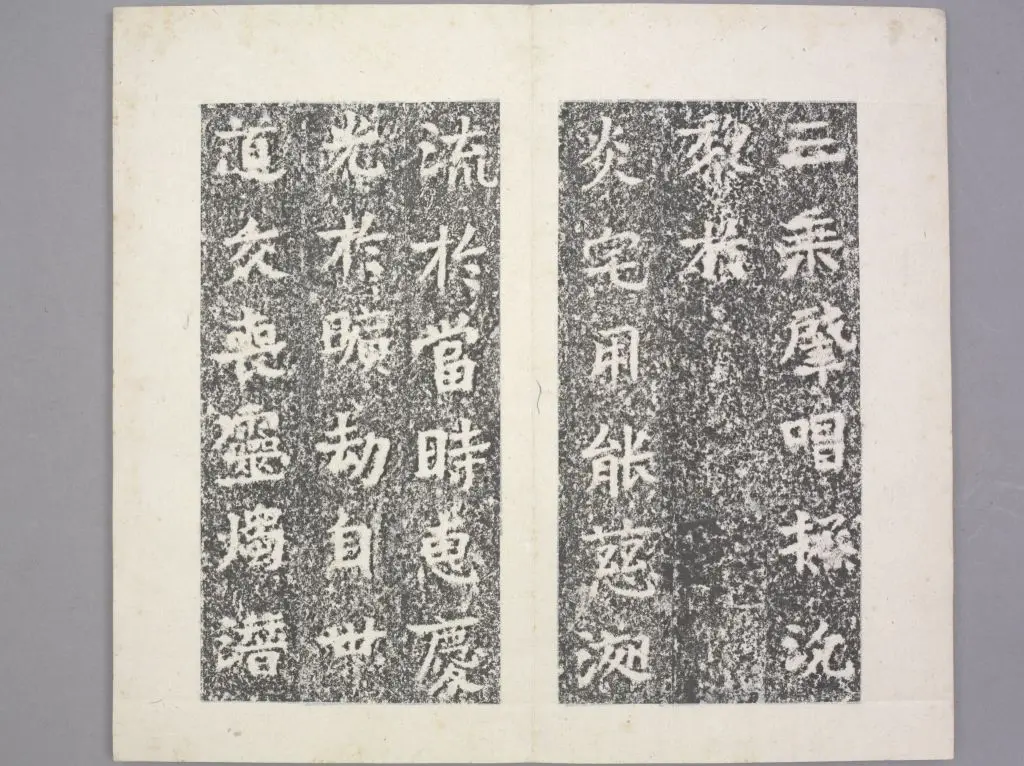 三乘肇唱拯沉
黎於
炎宅用能慈
流於當時惠慶
光於曠劫自世
道交喪靈燭潛